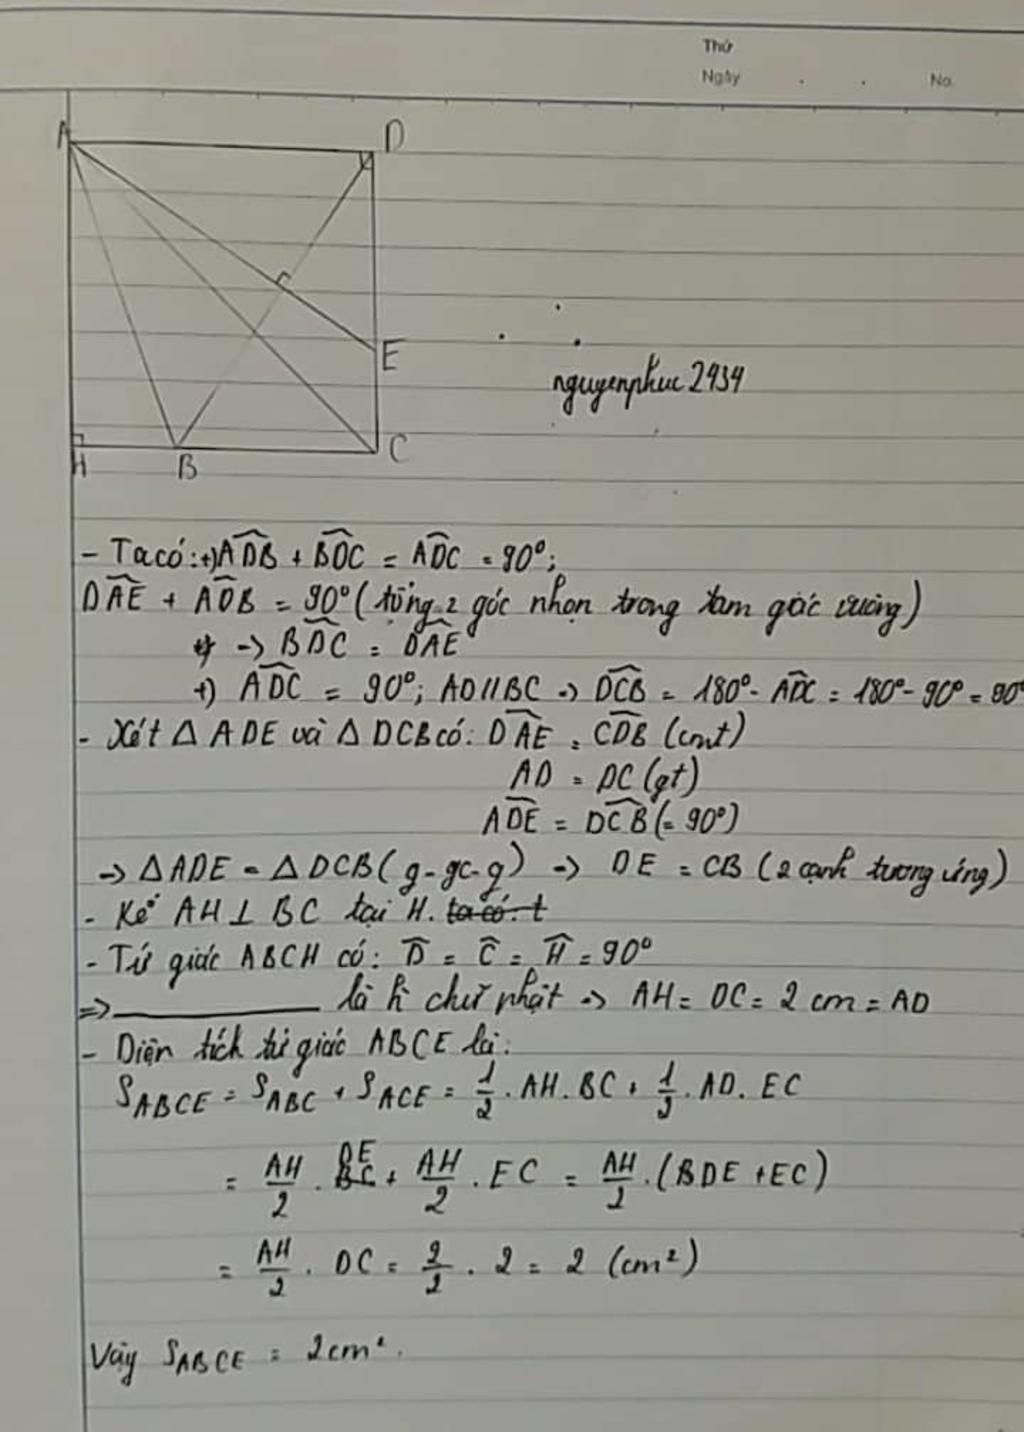 Thứ
Ngày . . No.
A D
E
H B C
nguyenphuc2434
- Ta có: +) ADB + BDC = ADC = 90°;
DAE + ADB = 90° (tổng 2 góc nhọn trong tam giác vuông)
→ BDC = DAE
+) ADC = 90°; AD // BC → DCB = 180° - ADC = 180° - 90° = 90°
- Xét △ ADE và △ DCB có: DAE = CDB (cmt)
AD = DC (gt)
ADE = DCB (= 90°)
→ △ ADE = △ DCB (g-gc-g) → DE = CB (2 cạnh tương ứng)
- Kẻ AH ⊥ BC tại H. ta có: t
- Tứ giác ABCH có: D = C = H = 90°
=> ________ là h chữ nhật → AH = DC = 2 cm = AD
- Diện tích tứ giác ABCE là:
S_ABCE = S_ABC + S_ACE = 1/2 . AH. BC + 1/2 . AD. EC
= AH/2 . DE + AH/2 . EC = AH/2 . (BDE + EC)
= AH/2 . DC = 2/2 . 2 = 2 (cm²)
Vậy S_ABCE = 2cm².